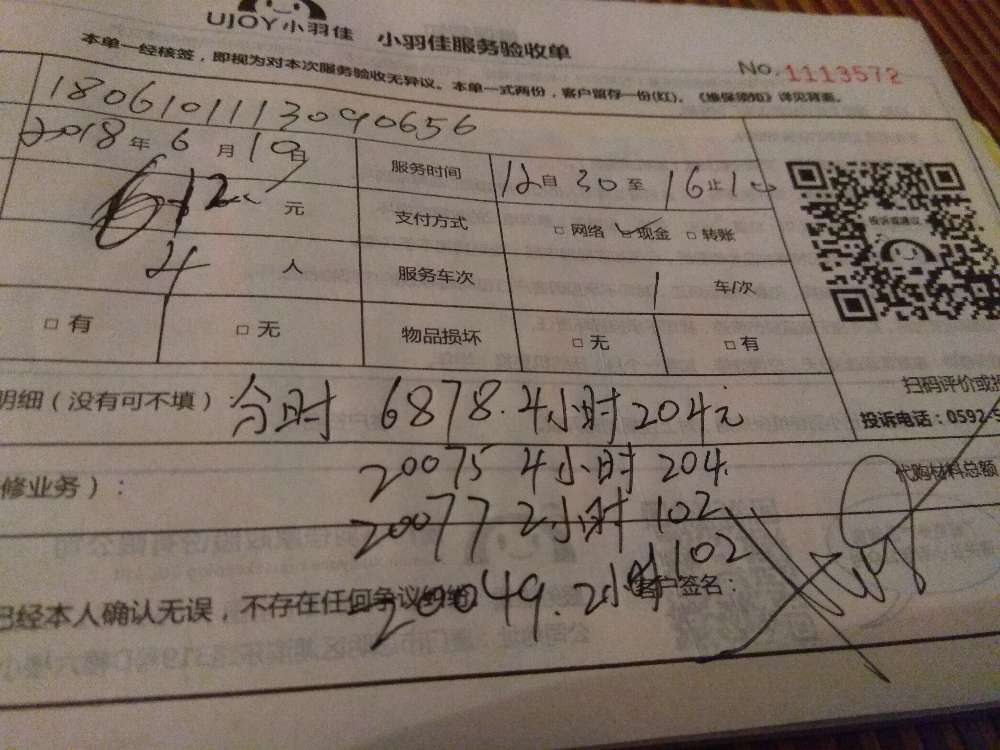 UJOY小羽佳 小羽佳服务验收单
No.1113572
本单一经核签，即视为对本次服务验收无异议。本单一式两份，客户留存一份(红)。《维保须知》详见背面。
1806101113090656
2018年6月10日 服务时间 12自30至16止1
612 元 支付方式 □网络 ☑现金 □转账
4 人 服务车次 1 车/次
□有 □无 物品损坏 □无 □有
投诉或建议
扫码评价或投
投诉电话：0592-5
明细（没有可不填）：分时 6878.4小时204元
20075 4小时 204.
修业务）：
代购材料总额
20077 2小时 102
20049.2小时102
已经本人确认无误，不存在任何争议纠纷 客户签名：